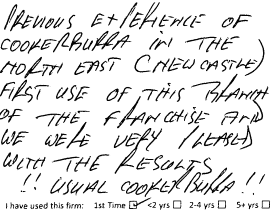 PREVIOUS EXPERIENCE OF
COOKERBURRA IN THE
NORTH EAST (NEWCASTLE)
FIRST USE OF THIS BRANCH
OF THE FRANCHISE AND
WE WERE VERY PLEASED
WITH THE RESULTS
!! USUAL COOKERBURRA !!
I have used this firm: 1st Time ☑ <2 yrs ☐ 2-4 yrs ☐ 5+ yrs ☐